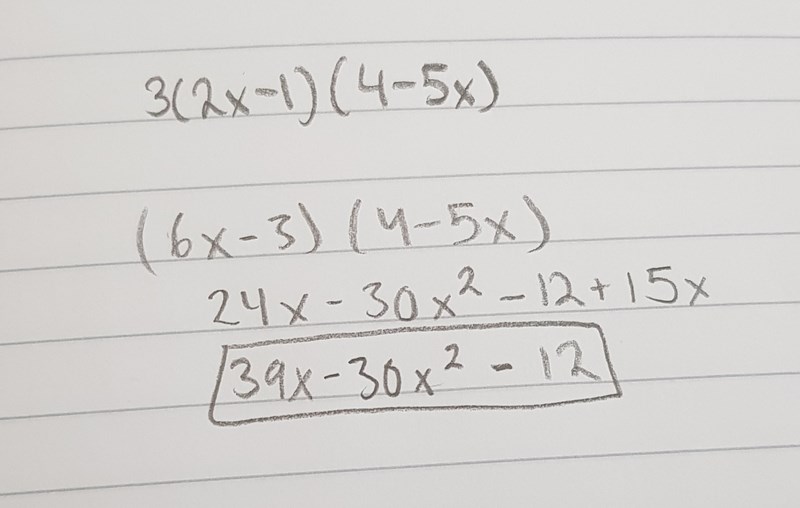 3(2x-1)(4-5x)
(6x-3)(4-5x)
24x-30x²-12+15x
39x-30x²-12